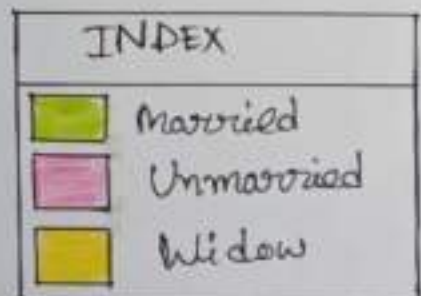 INDEX
Married
Unmarried
Widow